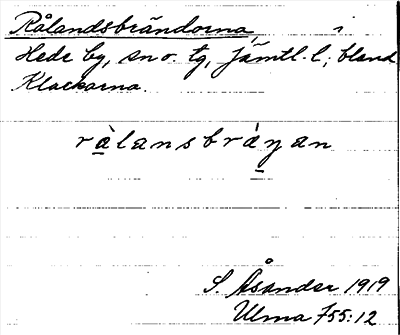 Rålandsbrändorna, i
Hede by, sn o. tg, Jämtl. l; bland
Klackarna.
rålansbräṇan
S. Åsander 1919
Ulma 755:12